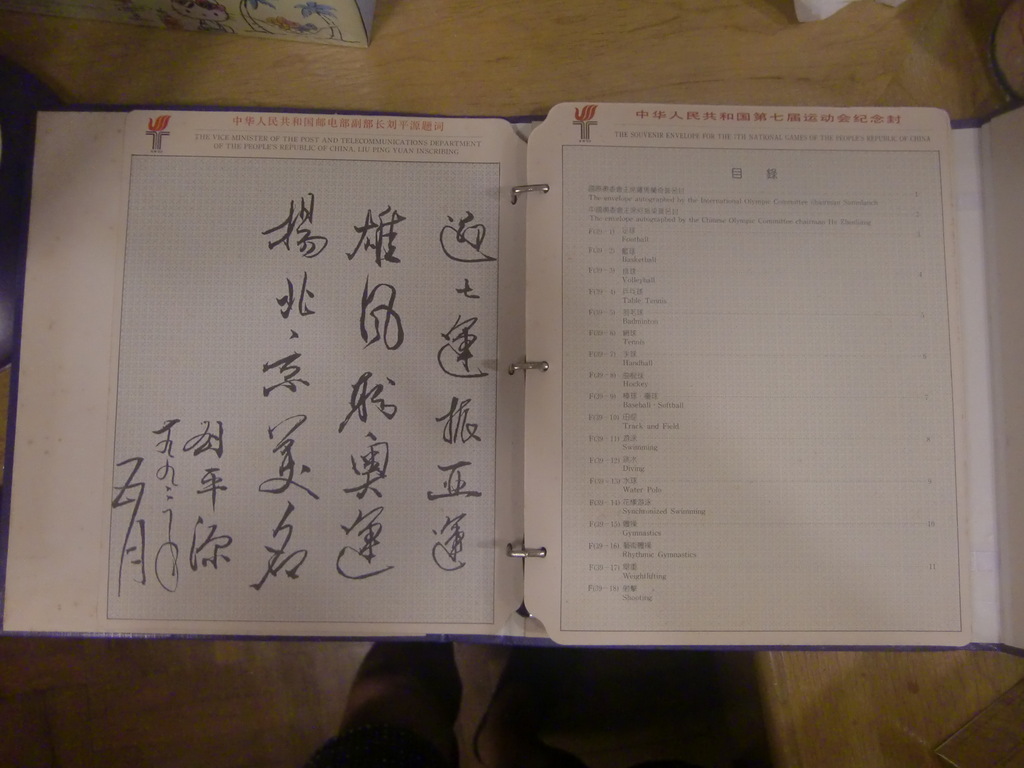 中华人民共和国邮电部副部长刘平源题词
THE VICE MINISTER OF THE POST AND TELECOMMUNICATIONS DEPARTMENT
OF THE PEOPLE'S REPUBLIC OF CHINA, LIU PING YUAN INSCRIBING
迎七運振亚運
雄风盼奥運
揚北京美名
刘平源
一九九三年
五月
中华人民共和国第七届运动会纪念封
THE SOUVENIR ENVELOPE FOR THE 7TH NATIONAL GAMES OF THE PEOPLE'S REPUBLIC OF CHINA
目 錄
The envelope autographed by the International Olympic Committee chairman Samaranch 1
The envelope autographed by the Chinese Olympic Committee chairman He Zhenliang 2
F(39-1) 足球
Football
F(39-2) 籃球
Basketball
F(39-3) 排球
Volleyball
F(39-4) 乒乓球
Table Tennis
F(39-5) 羽毛球
Badminton
F(39-6) 網球
Tennis
F(39-7) 手球
Handball
F(39-8)
Hockey
F(39-9) 棒球 壘球
Baseball Softball
F(39-10) 田徑
Track and Field
F(39-11) 游泳
Swimming
F(39-12) 跳水
Diving
F(39-13) 水球
Water Polo
F(39-14) 花樣游泳
Synchronized Swimming
F(39-15) 體操 10
Gymnastics
F(39-16) 藝術體操
Rhythmic Gymnastics
F(39-17) 舉重 11
Weightlifting
F(39-18) 射擊
Shooting